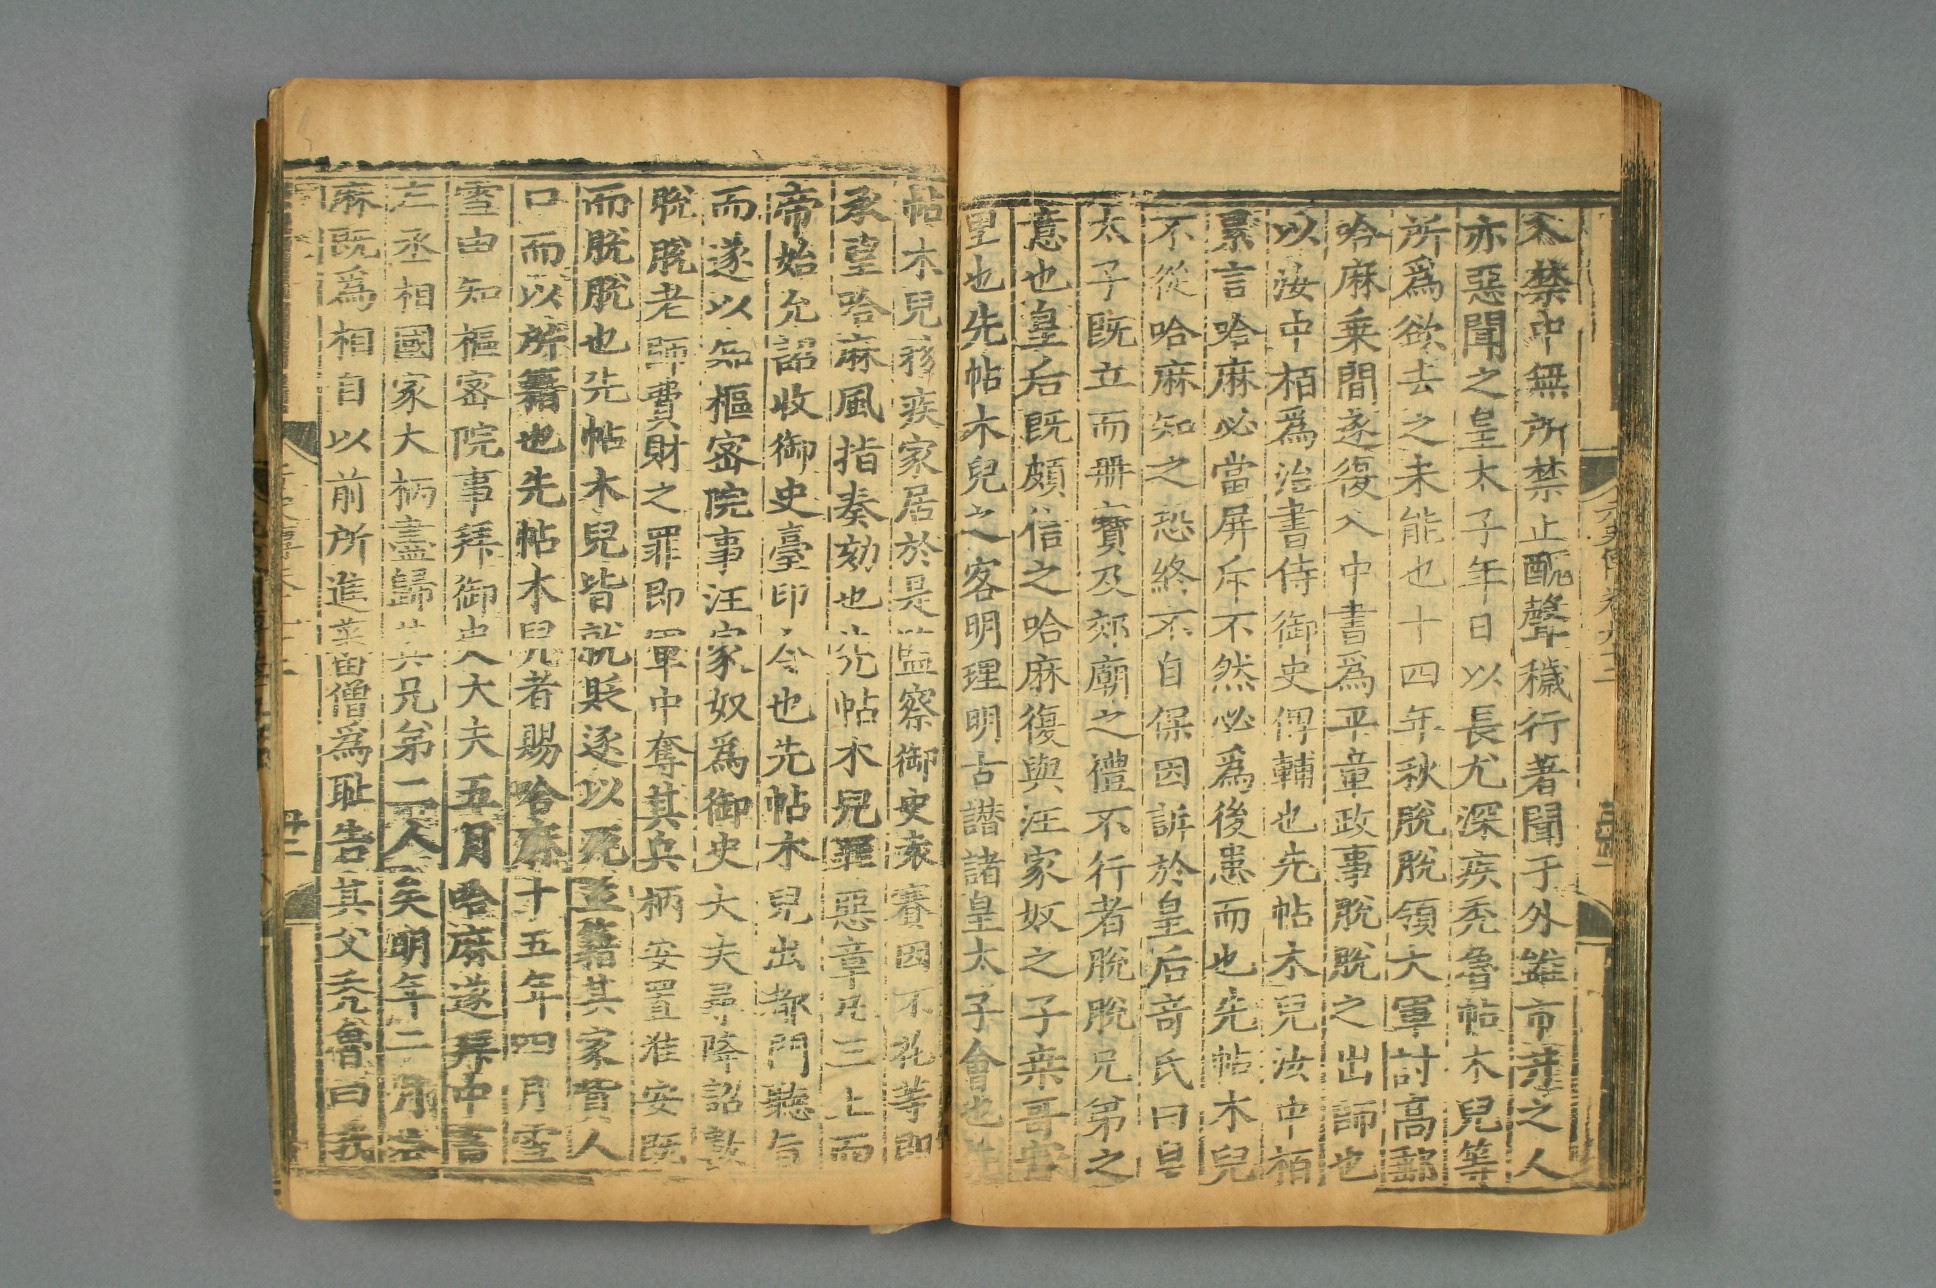 入禁中無所禁止醜聲穢行著聞于外雖市井之人
亦惡聞之皇太子年日以長尤深疾禿魯帖木兒等
所爲欲去之未能也十四年秋脫脫領大軍討高郵
哈麻乗間遂復入中書爲平章政事脫脫之出師也
以汝中栢爲治書侍御史俾輔也先帖木兒汝中栢
累言哈麻必當屏斥不然必爲後患而也先帖木兒
不從哈麻知之恐終不自保因訴於皇后竒氏曰皇
太子既立而冊寶及郊廟之禮不行者脫脫兄弟之
意也皇后既頗信之哈麻復與汪家奴之子桒哥實
里也先帖木兒之客明理明古譖諸皇太子會也先
帖木兒移疾家居於是監察御史袁賽因不花等即
承望哈麻風指奏劾也先帖木兒罪惡章凡三上而
帝始允詔收御史臺印令也先帖木兒出都門聽旨
而遂以知樞密院事汪家奴爲御史大夫尋降詔數
脫脫老師費財之罪即軍中奪其兵柄安置淮安既
而脫脫也先帖木兒皆就貶逐以死並籍其家貲人
口而以所籍也先帖木兒者賜哈麻十五年四月雪
雪由知樞密院事拜御史大夫五月哈麻遂拜中書
左丞相國家大柄盡歸其兄弟二人矣明年二月哈
麻既爲相自以前所進蕃僧爲恥告其父禿魯曰我